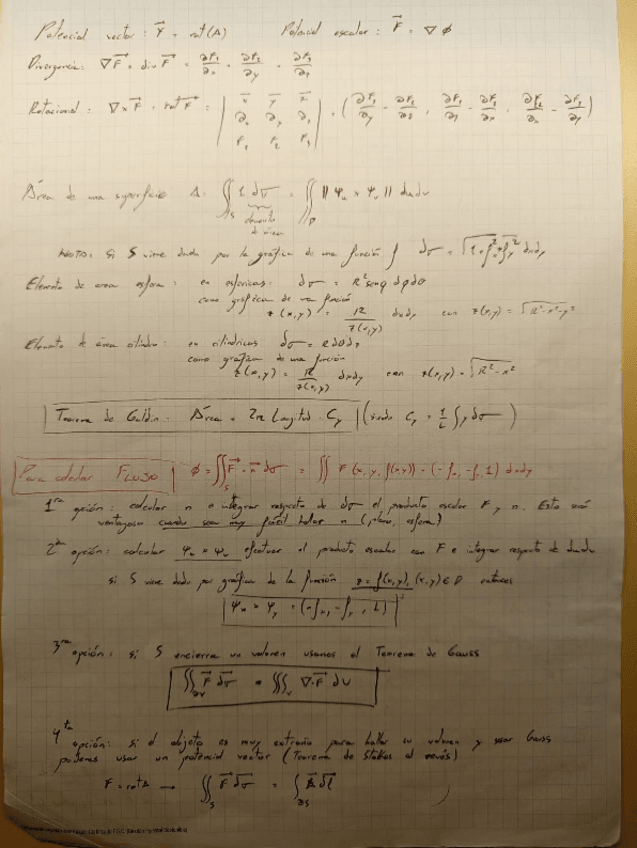 Potencial vector: F⃗ = rot(A)   Potencial escalar: F⃗ = ∇φ
Divergencia: ∇F⃗ = div F⃗ = ∂F₁/∂x + ∂F₂/∂y + ∂F₃/∂z
Rotacional: ∇×F⃗ = rot F⃗ =
Área de una superficie A = ∬_S 1 dσ = ∬_D ||Ψᵤ × Ψᵥ|| du dv
elemento de área
NOTA: si S viene dada por la gráfica de una función f
Elemento de area esfera: en esfericas: dσ = R² senφ dφdθ
como grafica de una función
z(x,y) = R/z(x,y) dxdy con z(x,y) = √R²-x²-y²
Elemento de área cilindro: en cilindricas dσ = R dθdz
como grafica de una función
z(x,y) = R/z(x,y) dxdy con z(x,y) = √R²-x²
Teorema de Guldin: Área = 2π Longitud · Cy (siendo Cy = 1/L ∫ y dσ)
Para calcular FLUJO φ = ∬_S F⃗ · n⃗ dσ = ∬ F(x,y,f(x,y)) · (-fₓ, -f_y, 1) dxdy
1ra opción: calcular n e integrar respecto de dσ el producto escalar F y n. Esto será
ventajoso cuando sea muy fácil hallar n (plano, esfera)
2da opción: calcular Ψᵤ × Ψᵥ efectuar el producto escalar con F e integrar respecto de dudv
si S viene dado por gráfica de la función z = f(x,y), (x,y) ∈ D entonces
Ψₓ × Ψ_y = (-fₓ, -f_y, 1)
3ra opción: si S encierra un volumen usamos el Teorema de Gauss
∬_∂V F⃗ dσ⃗ = ∭_V ∇·F⃗ dV
4ta opción: si el objeto es muy extraño para hallar su volumen y usar Gauss
podemos usar un potencial vector (Teorema de Stokes al revés)
F = rot A → ∬_S F⃗ dσ⃗ = ∫_∂S A⃗ dl⃗